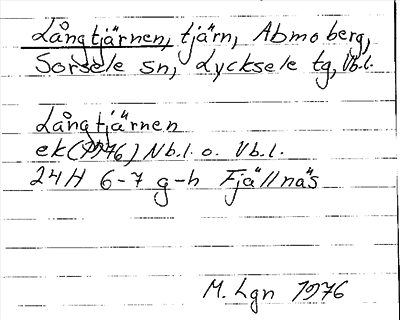 Långtjärnen, tjärn, Abmoberg,
Sorsele sn, Lycksele tg, Vb.l.
Långtjärnen
ek(1976) Nb.l. o. Vb.l.
24H 6-7 g-h Fjällnäs
M. Lgn 1976